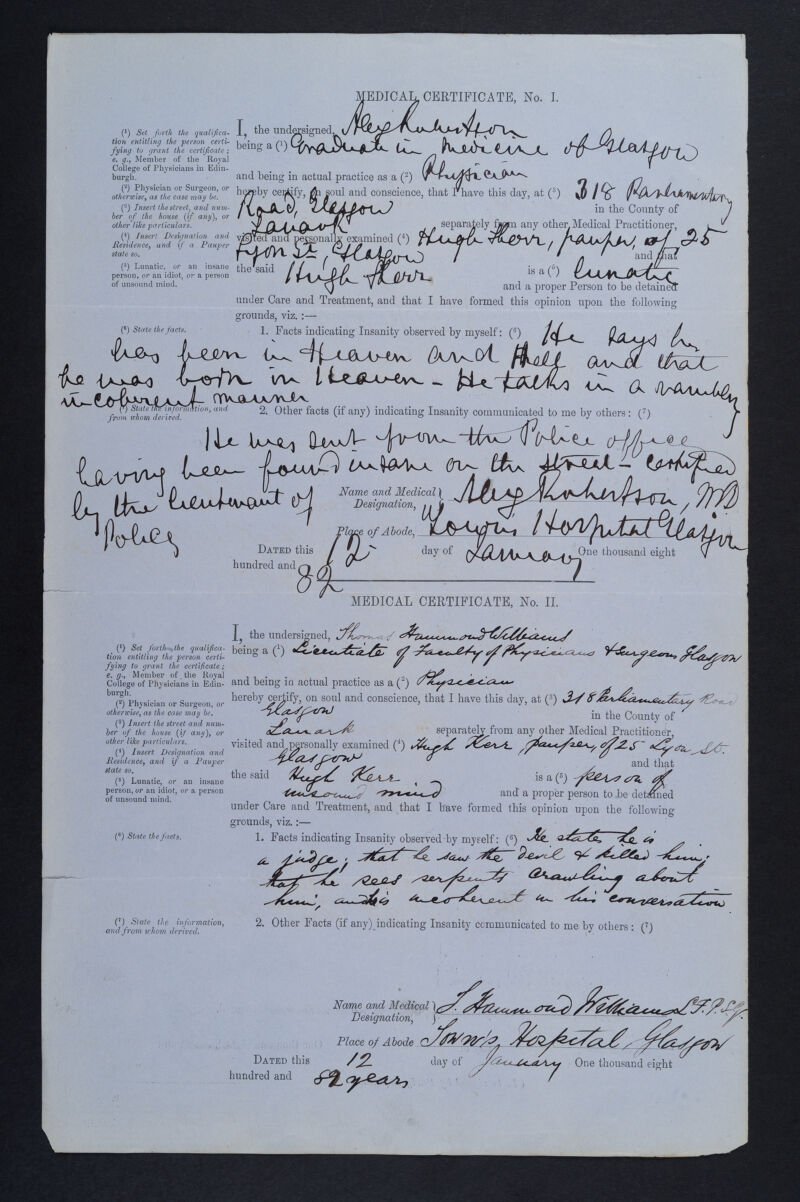 MEDICAL CERTIFICATE, No. I.
(1) Set forth the qualifica-
tion entitling the person certi-
fying to grant the certificate;
e. g., Member of the Royal
College of Physicians in Edin-
burgh.
(2) Physician or Surgeon, or
otherwise, as the case may be.
(3) Insert the street, and num-
ber of the house (if any), or
other like particulars.
(4) Insert Designation and
Residence, and if a Pauper
state so.
(5) Lunatic, or an insane
person, or an idiot, or a person
of unsound mind.
I, the undersigned, Alex Robertson
being a (1) Graduate in Medicine of Glasgow
and being in actual practice as a (2) Physician
hereby certify, on soul and conscience, that I have this day, at (3) 318 Parliamentary
Road, Glasgow in the County of
Lanark separately from any other Medical Practitioner,
visited and personally examined (4) Hugh Kerr, pauper, of 25
Lyon St, Glasgow and that
the said Hugh Kerr is a (5) lunatic
and a proper Person to be detained
under Care and Treatment, and that I have formed this opinion upon the following
grounds, viz. :—
(6) State the facts.
1. Facts indicating Insanity observed by myself: (6) He says he
has been in Heaven and Hell and that
he was born in Heaven – He talks in a rambling
incoherent manner
(7) State the information, and
from whom derived.
2. Other facts (if any) indicating Insanity communicated to me by others: (7)
He was sent from the Police office
having been found insane on the street – certified
by the lieutenant of
Police
Name and Medical
Designation, Alex Robertson, MD
Place of Abode, Town's Hospital Glasgow
DATED this 12 day of January One thousand eight
hundred and 82
MEDICAL CERTIFICATE, No. II.
(1) Set forth the qualifica-
tion entitling the person certi-
fying to grant the certificate;
e. g., Member of the Royal
College of Physicians in Edin-
burgh.
(2) Physician or Surgeon, or
otherwise, as the case may be.
(3) Insert the street and num-
ber of the house (if any), or
other like particulars.
(4) Insert Designation and
Residence, and if a Pauper
state so.
(5) Lunatic, or an insane
person, or an idiot, or a person
of unsound mind.
I, the undersigned, Thomas Hammond Williams
being a (1) Licentiate of Faculty of Physicians & Surgeons Glasgow
and being in actual practice as a (2) Physician
hereby certify, on soul and conscience, that I have this day, at (3) 318 Parliamentary Road
Glasgow in the County of
Lanark separately from any other Medical Practitioner,
visited and personally examined (4) Hugh Kerr pauper, of 25 Lyon St.
Glasgow and that
the said Hugh Kerr is a (5) person of
unsound mind and a proper person to be detained
under Care and Treatment, and that I have formed this opinion upon the following
grounds, viz. :—
(6) State the facts.
1. Facts indicating Insanity observed by myself: (6) He states he is
a judge; that he saw the devil & killed him;
that he sees serpents crawling about
him, and is incoherent in his conversation.
(7) State the information,
and from whom derived.
2. Other Facts (if any) indicating Insanity communicated to me by others: (7)
Name and Medical
Designation, T. Hammond Williams L.F.P.S.G.
Place of Abode Town's Hospital, Glasgow
DATED this 12 day of January One thousand eight
hundred and 82 years